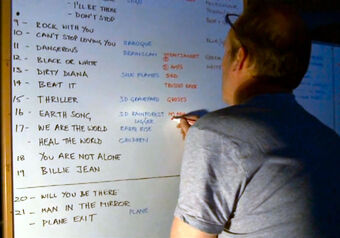 - I'LL BE THERE
- DON'T STOP
9 - ROCK WITH YOU
10 - CAN'T STOP LOVING YOU BAROQUE
11 - DANGEROUS
12 - BLACK OR WHITE
13 - DIRTY DIANA SILK FLAMES
14 - BEAT IT
15 - THRILLER 3D GRAVEYARD GHOSTS
16 - EARTH SONG, 3D RAINFOREST
17 - WE ARE THE WORLD
- HEAL THE WORLD CHILDREN
18 YOU ARE NOT ALONE
19 BILLIE JEAN
20 - WILL YOU BE THERE
21 - MAN IN THE MIRROR
- PLANE EXIT PLANE